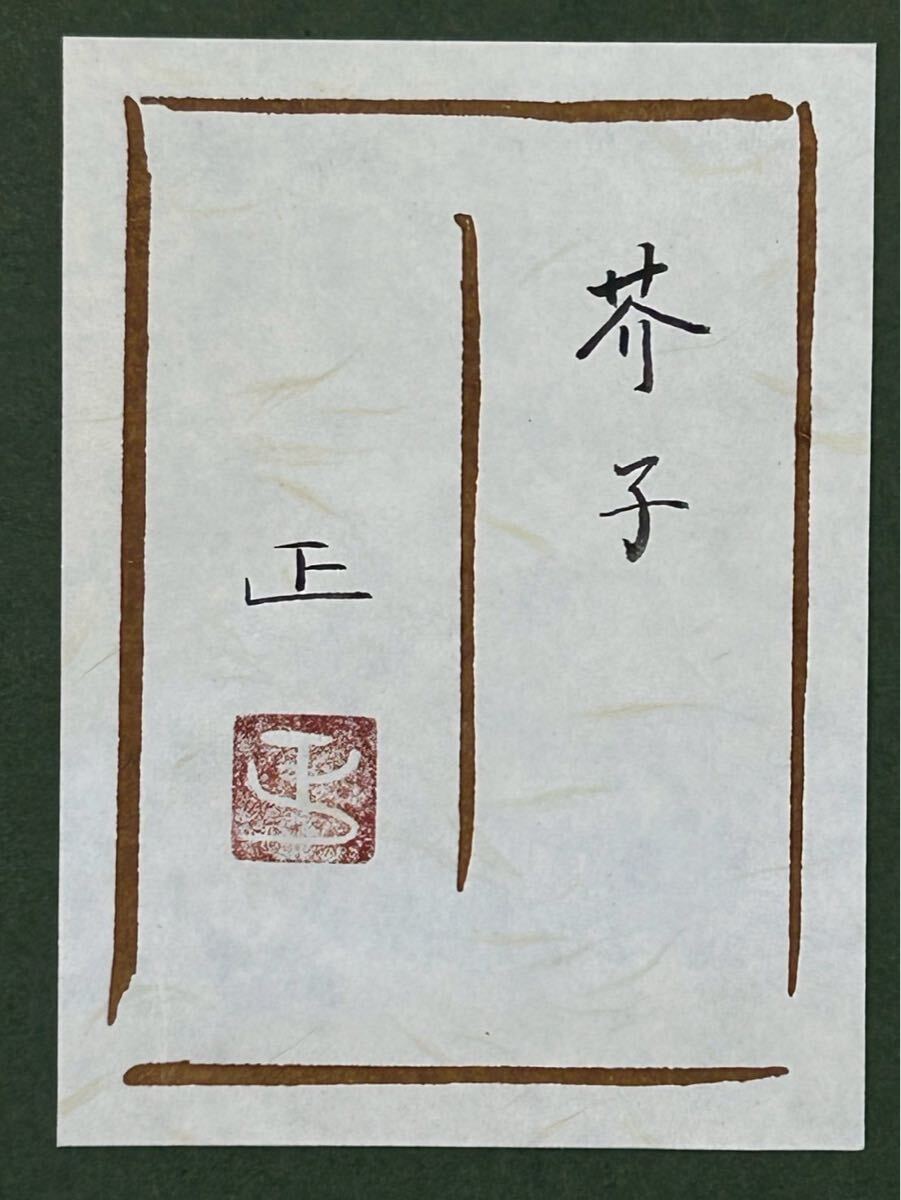 芥子
正
正